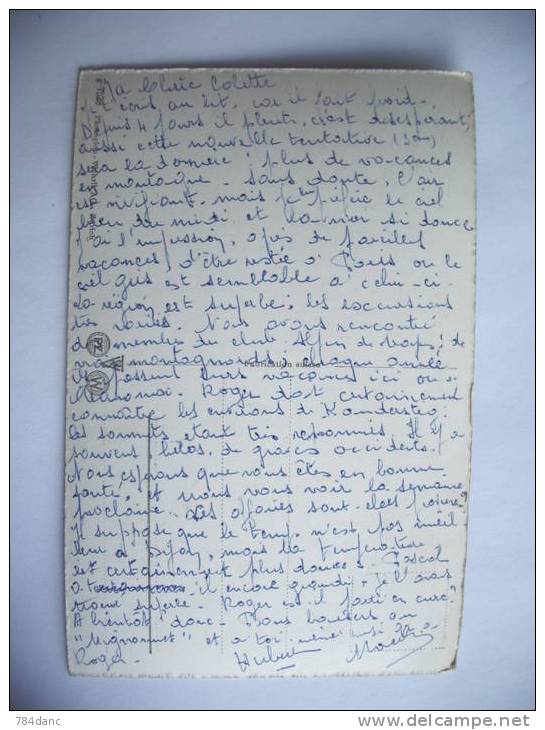 Ma Chère Colette
J'écris au lit, car il fait froid.
Depuis 4 jours il pleut, c'est désespérant,
aussi cette nouvelle tentative
sera la dernière ; plus de vacances
en montagne. Sans doute, l'air
est vivifiant, mais je préfère le ciel
bleu du midi et la mer si douce
J'ai l'impression, après de pareilles
vacances, d'être restée à Paris ou le
ciel gris est semblable à celui-ci.
La région est superbe ; les excursions
très variées. Nous avons rencontré
des membres du club Alpin de ;
montagnards ; chaque année
ils passent leurs vacances ici ou à
Chamonix. Roger doit certainement
connaître les environs de Kandersteg
les sommets étant très renommés. Il y a
souvent hélas, de graves accidents.
Nous espérons que vous êtes en bonne
santé, et nous vous voir la semaine
prochaine. Les affaires sont-elles
Je suppose que le temps n'est pas meil-
leur à Dijon, mais la température
est certainement plus douce. Pascal
a-t-il encore grandi. Je l'avais
trouvé superbe. Roger est-il parti en cure?
A bientôt donc. Bons baisers au
"Mignonnet" et à toi-même ainsi qu'à
Roger. Hubert
Fabrication suisse
784danc
www.delcampe.net